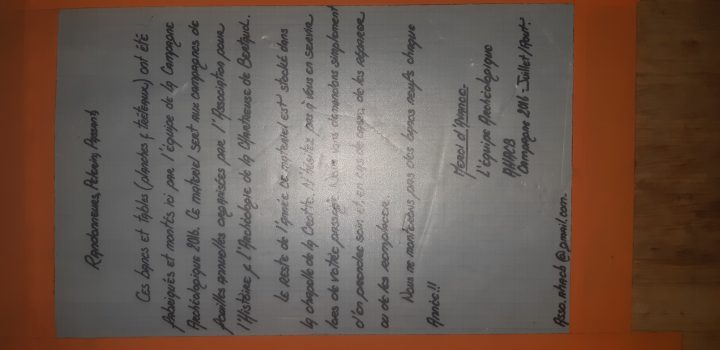 Randonneurs, Pèlerins, Passants
Ces bancs et tables (planches & tréteaux) ont été
fabriqués et montés ici par l'équipe de la Campagne
Archéologique 2016. Ce matériel sert aux campagnes de
fouilles annuelles organisées par l'Association pour
l'Histoire & l'Archéologie de la Chartreuse de Bertaud.
Le reste de l'année ce matériel est stocké dans
la chapelle de la Crotte. N'hésitez pas à vous en servir
lors de votre passage. Nous vous demandons simplement
d'en prendre soin et, en cas de casse, de les réparer
ou de les remplacer.
Nous ne monterons pas des bancs neufs chaque
Année!!
Merci d'Avance.
L'équipe Archéologique
AHACB
Campagne 2016 - Juillet/Août.
Asso.ahacb@gmail.com